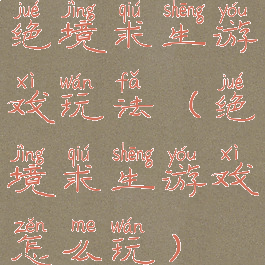 jué jìng qiú shēng yóu
绝境求生游
xì wán fǎ jué
戏玩法（绝
jìng qiú shēng yóu xì
境求生游戏
zěn me wán
怎么玩）